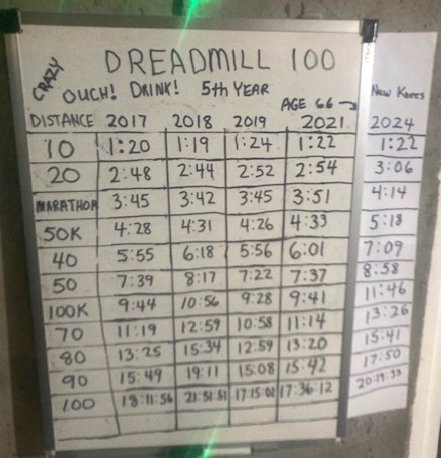 DREADMILL 100
CRAZY
OUCH! DRINK! 5th YEAR
AGE 66 → New Knees
DISTANCE 2017 2018 2019 2021 2024
10 1:20 1:19 1:24 1:22 1:22
20 2:48 2:44 2:52 2:54 3:06
MARATHON 3:45 3:42 3:45 3:51 4:14
50K 4:28 4:31 4:26 4:33 5:18
40 5:55 6:18 5:56 6:01 7:09
50 7:39 8:17 7:22 7:37 8:58
100K 9:44 10:56 9:28 9:41 11:46
70 11:19 12:59 10:58 11:14 13:26
80 13:25 15:34 12:59 13:20 15:41
90 15:49 19:11 15:08 15:42 17:50
100 18:11:56 21:51:51 17:15:02 17:36:12 20:19:33